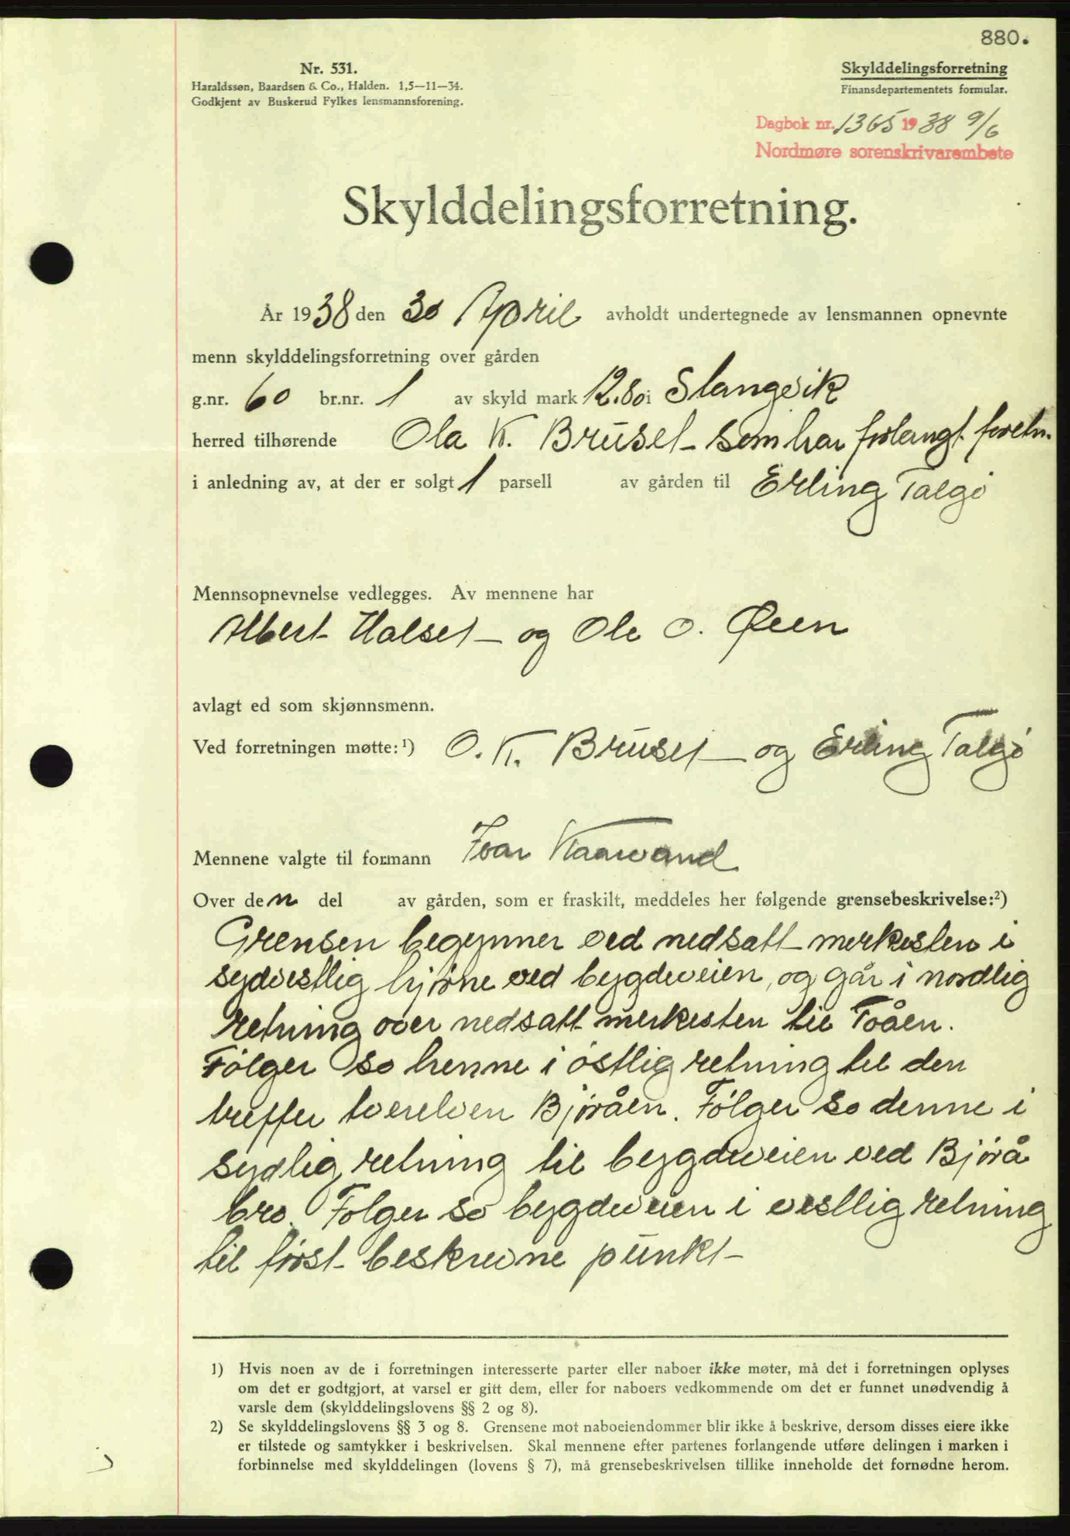 880.
Nr. 531.
Haraldssøn, Baardsen & Co., Halden. 1,5—11—34.
Godkjent av Buskerud Fylkes lensmannsforening.
Skylddelingsforretning
Finansdepartementets formular.
Dagbok nr. 1365 1938 9/6
Nordmøre sorenskrivarembete
Skylddelingsforretning.
År 1938 den 30 April avholdt undertegnede av lensmannen opnevnte
menn skylddelingsforretning over gården
g.nr. 60 br.nr. 1 av skyld mark 12.80 i Stangvik
herred tilhørende Ola K. Bruset som har forlangt forretn.
i anledning av, at der er solgt 1 parsell av gården til Erling Talgø
Mennsopnevnelse vedlegges. Av mennene har
Albert Halset og Ole O. Øien
avlagt ed som skjønnsmenn.
Ved forretningen møtte: ¹) O. K. Bruset og Erling Talgø
Mennene valgte til formann Ivar Kaarvand
Over den del av gården, som er fraskilt, meddeles her følgende grensebeskrivelse:²)
Grensen begynner ved nedsatt merkesten i
sydvestlig hjørne ved bygdeveien, og går i nordlig
retning over nedsatt merkesten til Toåen.
Følger so henne i østlig retning til den
treffer tverelven Bjøråen. Følger so denne i
sydlig retning til bygdeveien ved Bjørå
bro. Følger so bygdeveien i vestlig retning
til først beskrevne punkt
1) Hvis noen av de i forretningen interesserte parter eller naboer ikke møter, må det i forretningen oplyses
om det er godtgjort, at varsel er gitt dem, eller for naboers vedkommende om det er funnet unødvendig å
varsle dem (skylddelingslovens §§ 2 og 8).
2) Se skylddelingslovens §§ 3 og 8. Grensene mot naboeiendommer blir ikke å beskrive, dersom disses eiere ikke
er tilstede og samtykker i beskrivelsen. Skal mennene efter partenes forlangende utføre delingen i marken i
forbinnelse med skylddelingen (lovens § 7), må grensebeskrivelsen tillike inneholde det fornødne herom.